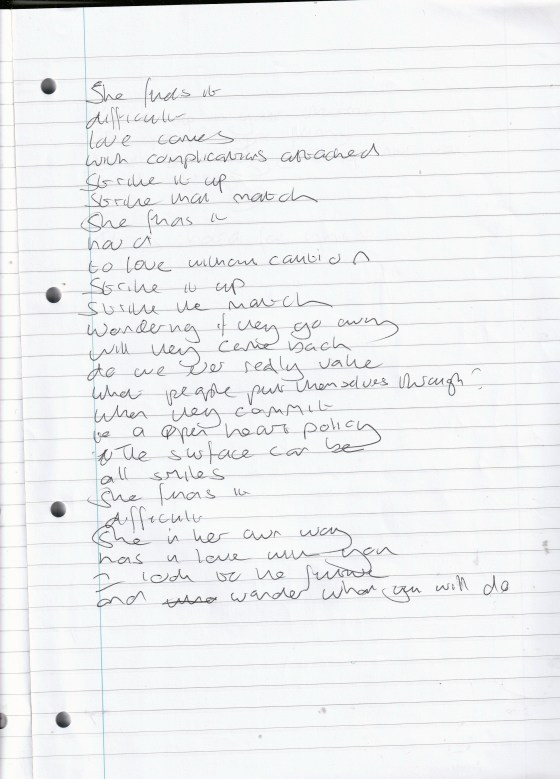 She finds it
difficult
love comes
with complications attached
Strike it up
Strike that match
She finds it
hard
to love without caution
Strike it up
Strike the match
Wondering if they go away
will they come back
do we ever really value
what people put themselves through?
When they commit
be a open heart policy
The surface can be
all smiles
She finds it
difficult
She in her own way
has in love with
I look to the future
and wonder what you will do